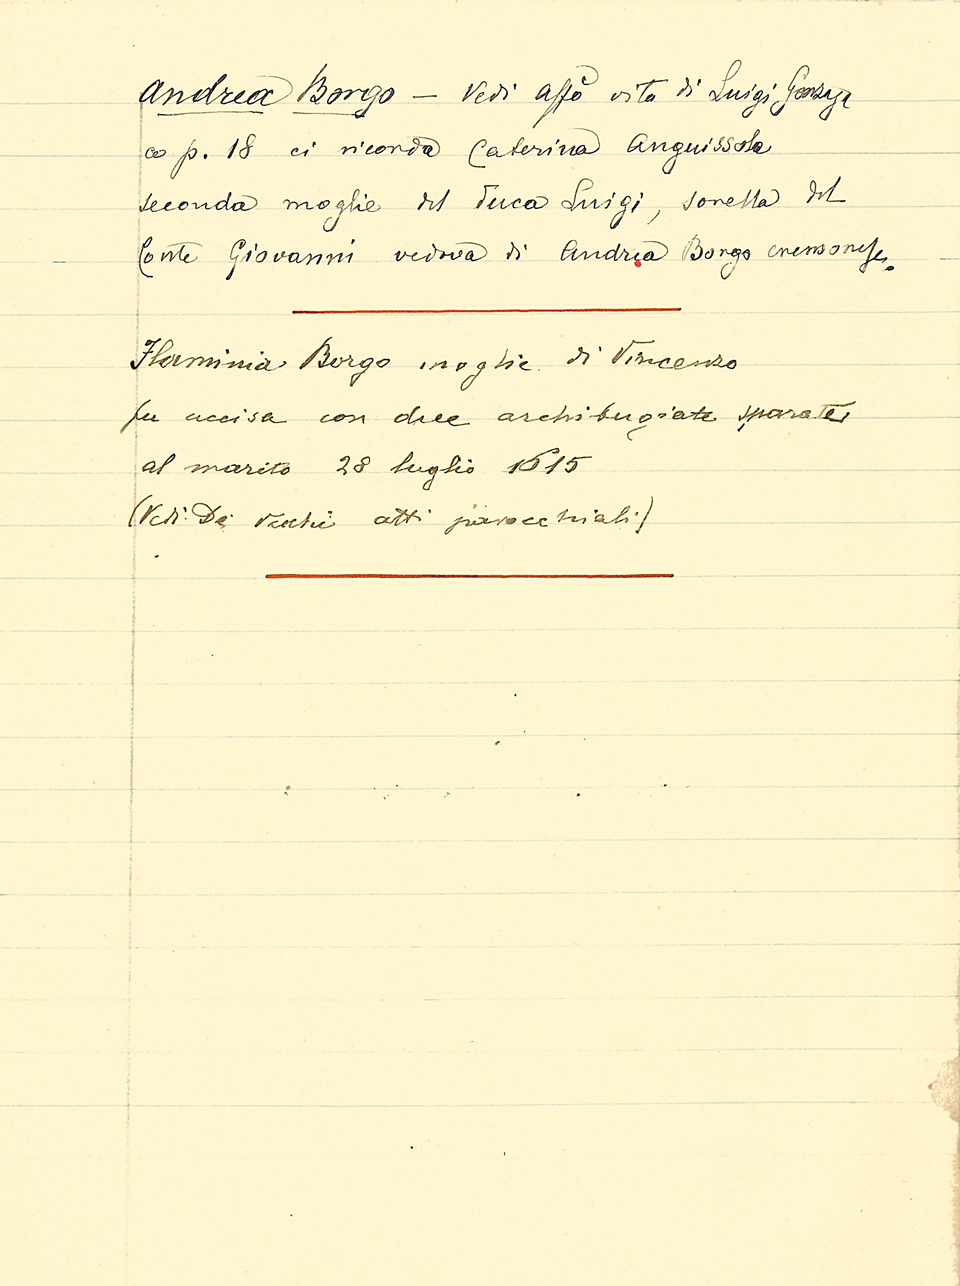 Andrea Borgo – Vedi Affò vita di Luigi Gonzaga
a p. 18 ci ricorda Caterina Anguissola
seconda moglie del Duca Luigi, sorella del
Conte Giovanni vedova di Andrea Borgo cremonese.
Flaminia Borgo moglie di Vincenzo
fu uccisa con due archibugiate sparate
al marito 28 luglio 1615
(Vedi: De Vecchi atti parocchiali)